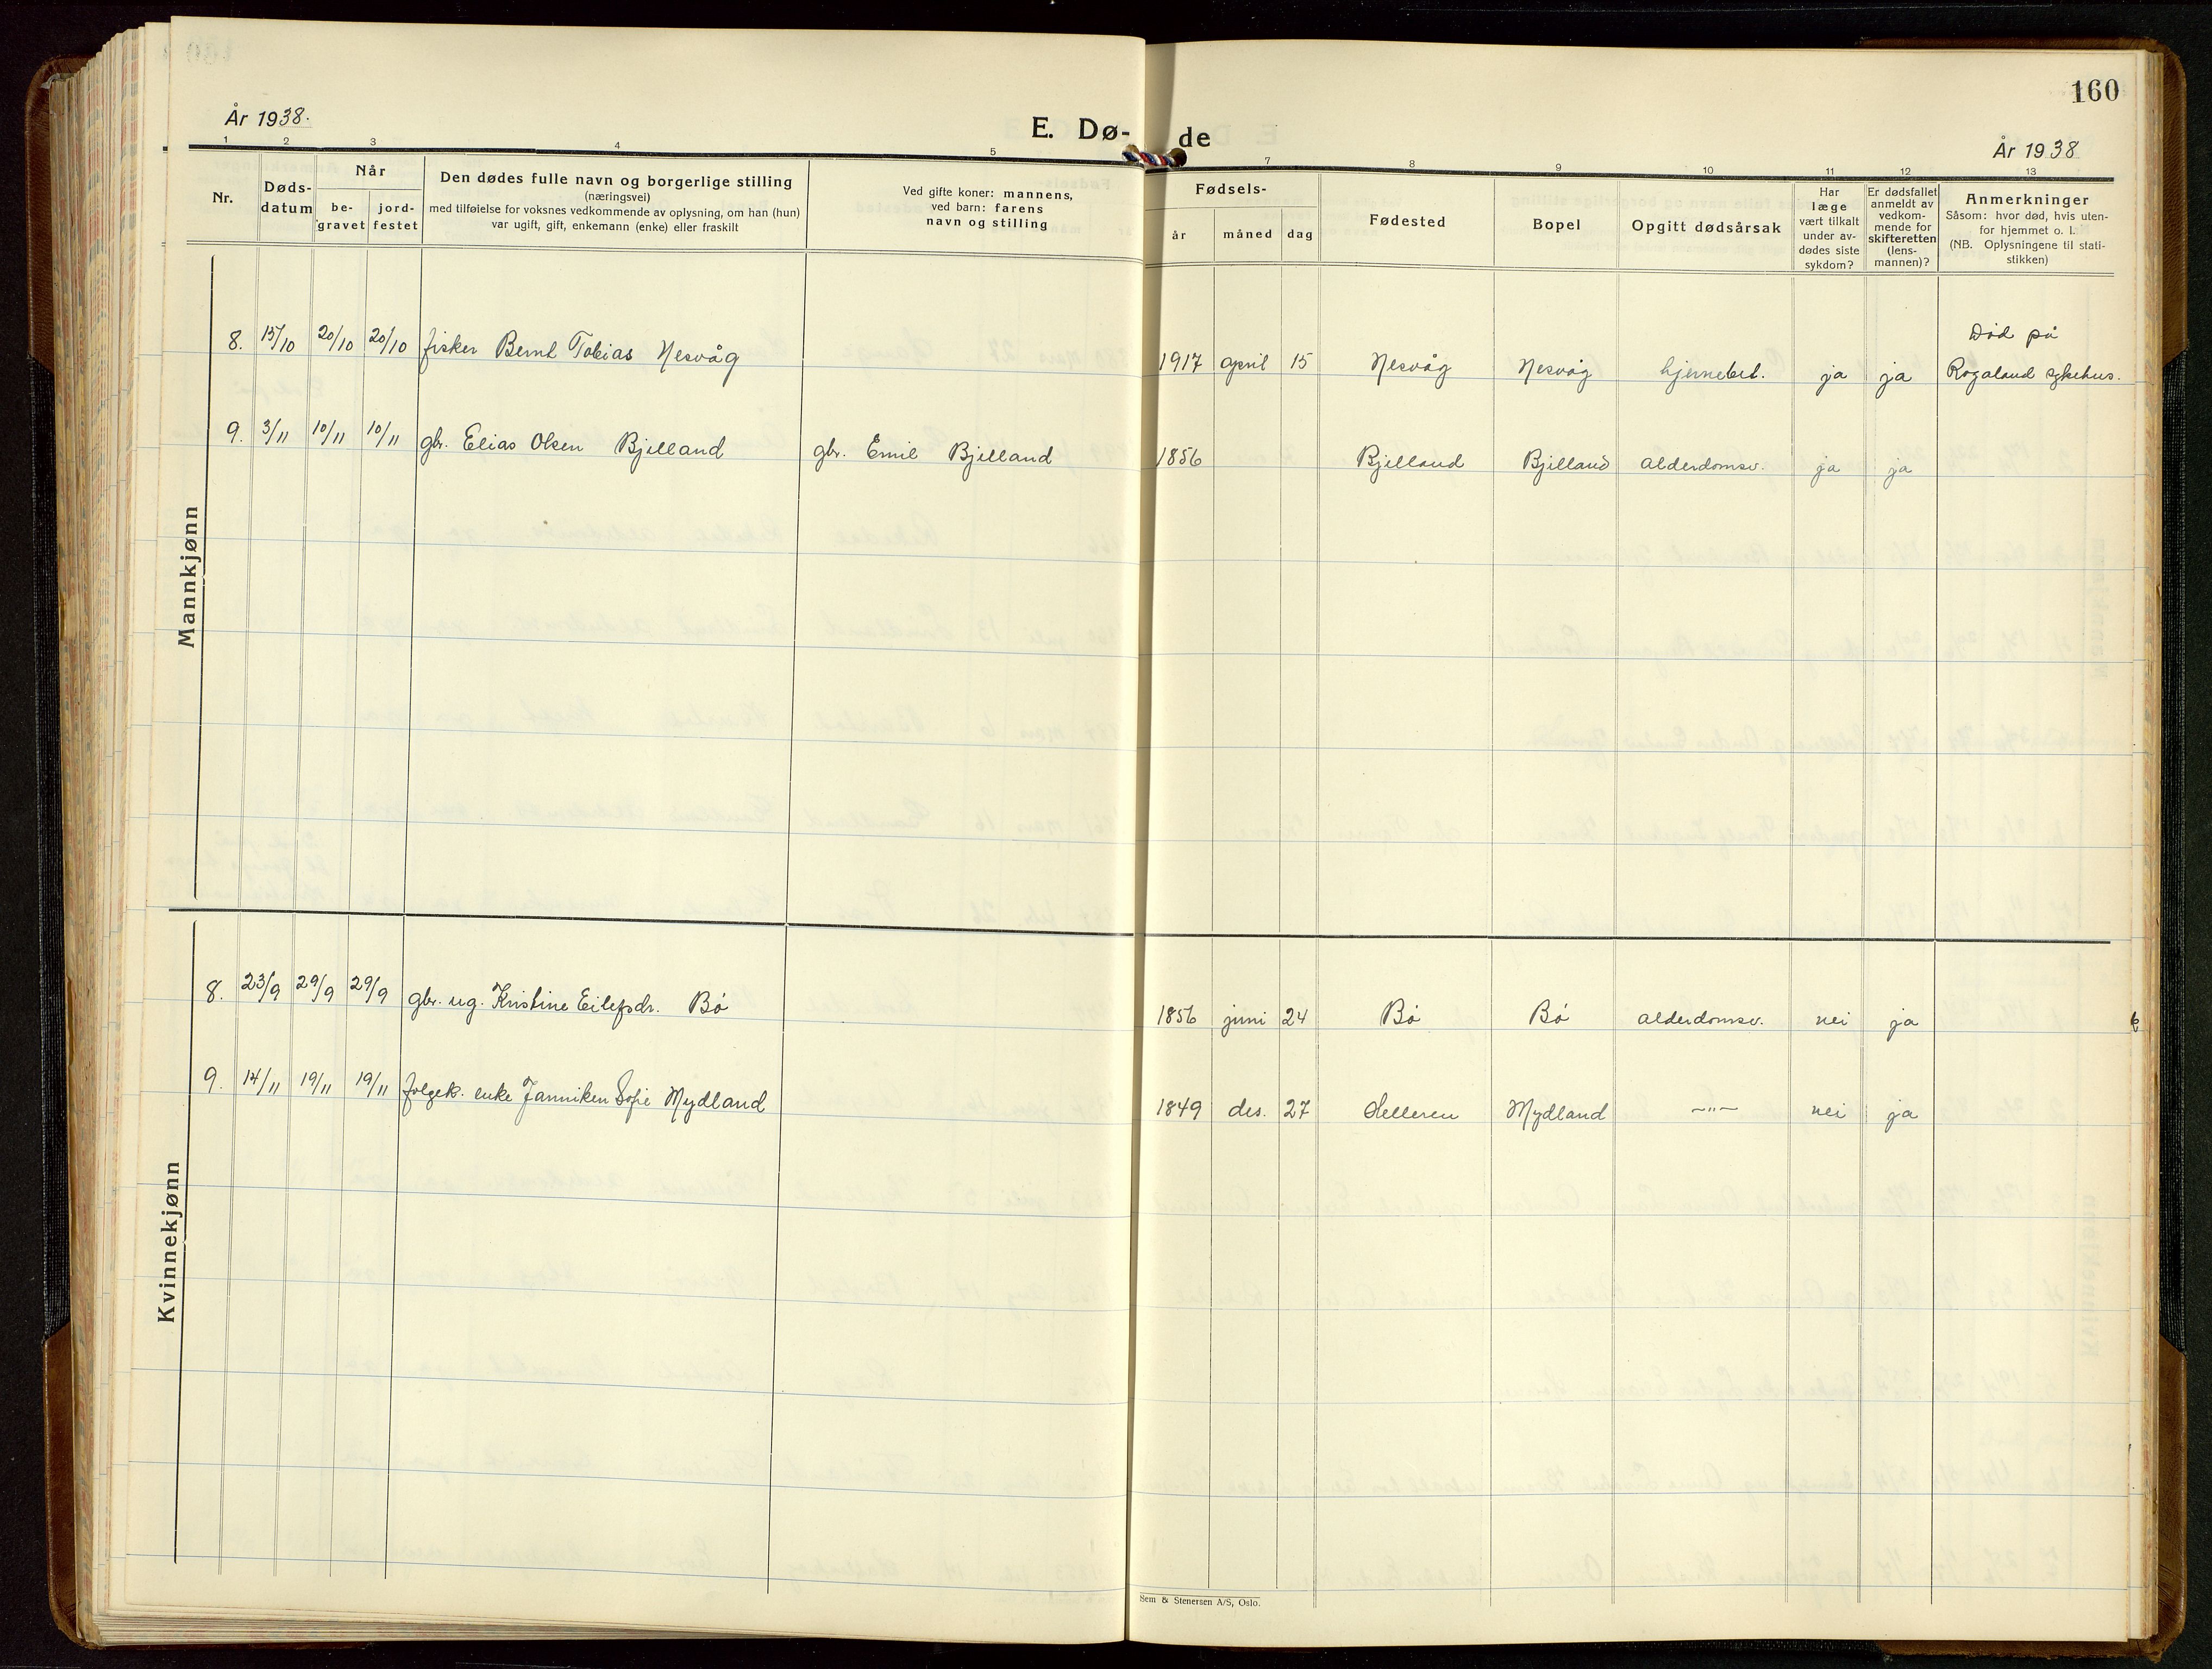 160
År 1938.
E. Dø-de
År 1938
1 2 3 4 5 7 8 9 10 11 12 13
Nr.
Døds-
datum
Når
be-
gravet
jord-
festet
Den dødes fulle navn og borgerlige stilling
(næringsvei)
med tilføielse for voksnes vedkommende av oplysning, om han (hun)
var ugift, gift, enkemann (enke) eller fraskilt
Ved gifte koner: mannens,
ved barn: farens
navn og stilling
Fødsels-
år måned dag
Fødested
Bopel
Opgitt dødsårsak
Har
læge
vært tilkalt
under av-
dødes siste
sykdom?
Er dødsfallet
anmeldt av
vedkom-
mende for
skifteretten
(lens-
mannen)?
Anmerkninger
Såsom: hvor død, hvis uten-
for hjemmet o. l.
(NB. Oplysningene til stati-
stikken)
Mannkjønn
8. 15/10 20/10 20/10 fisker Bernt Tobias Nesvåg 1917 april 15 Nesvåg Nesvåg hjernebet. ja ja Død på
Rogaland sykehus.
9. 3/11 10/11 10/11 gbr. Elias Olsen Bjelland gbr. Emil Bjelland 1856 Bjelland Bjelland alderdomsv. ja ja
Kvinnekjønn
8. 23/9 29/9 29/9 gbr. ug. Kristine Eilefsdr. Bø 1856 juni 24 Bø Bø alderdomsv. nei ja
9. 14/11 19/11 19/11 folgek. enke Janniken Sofie Mydland 1849 des. 27 Helleren Mydland —"— nei ja
Sem & Stenersen A/S, Oslo.